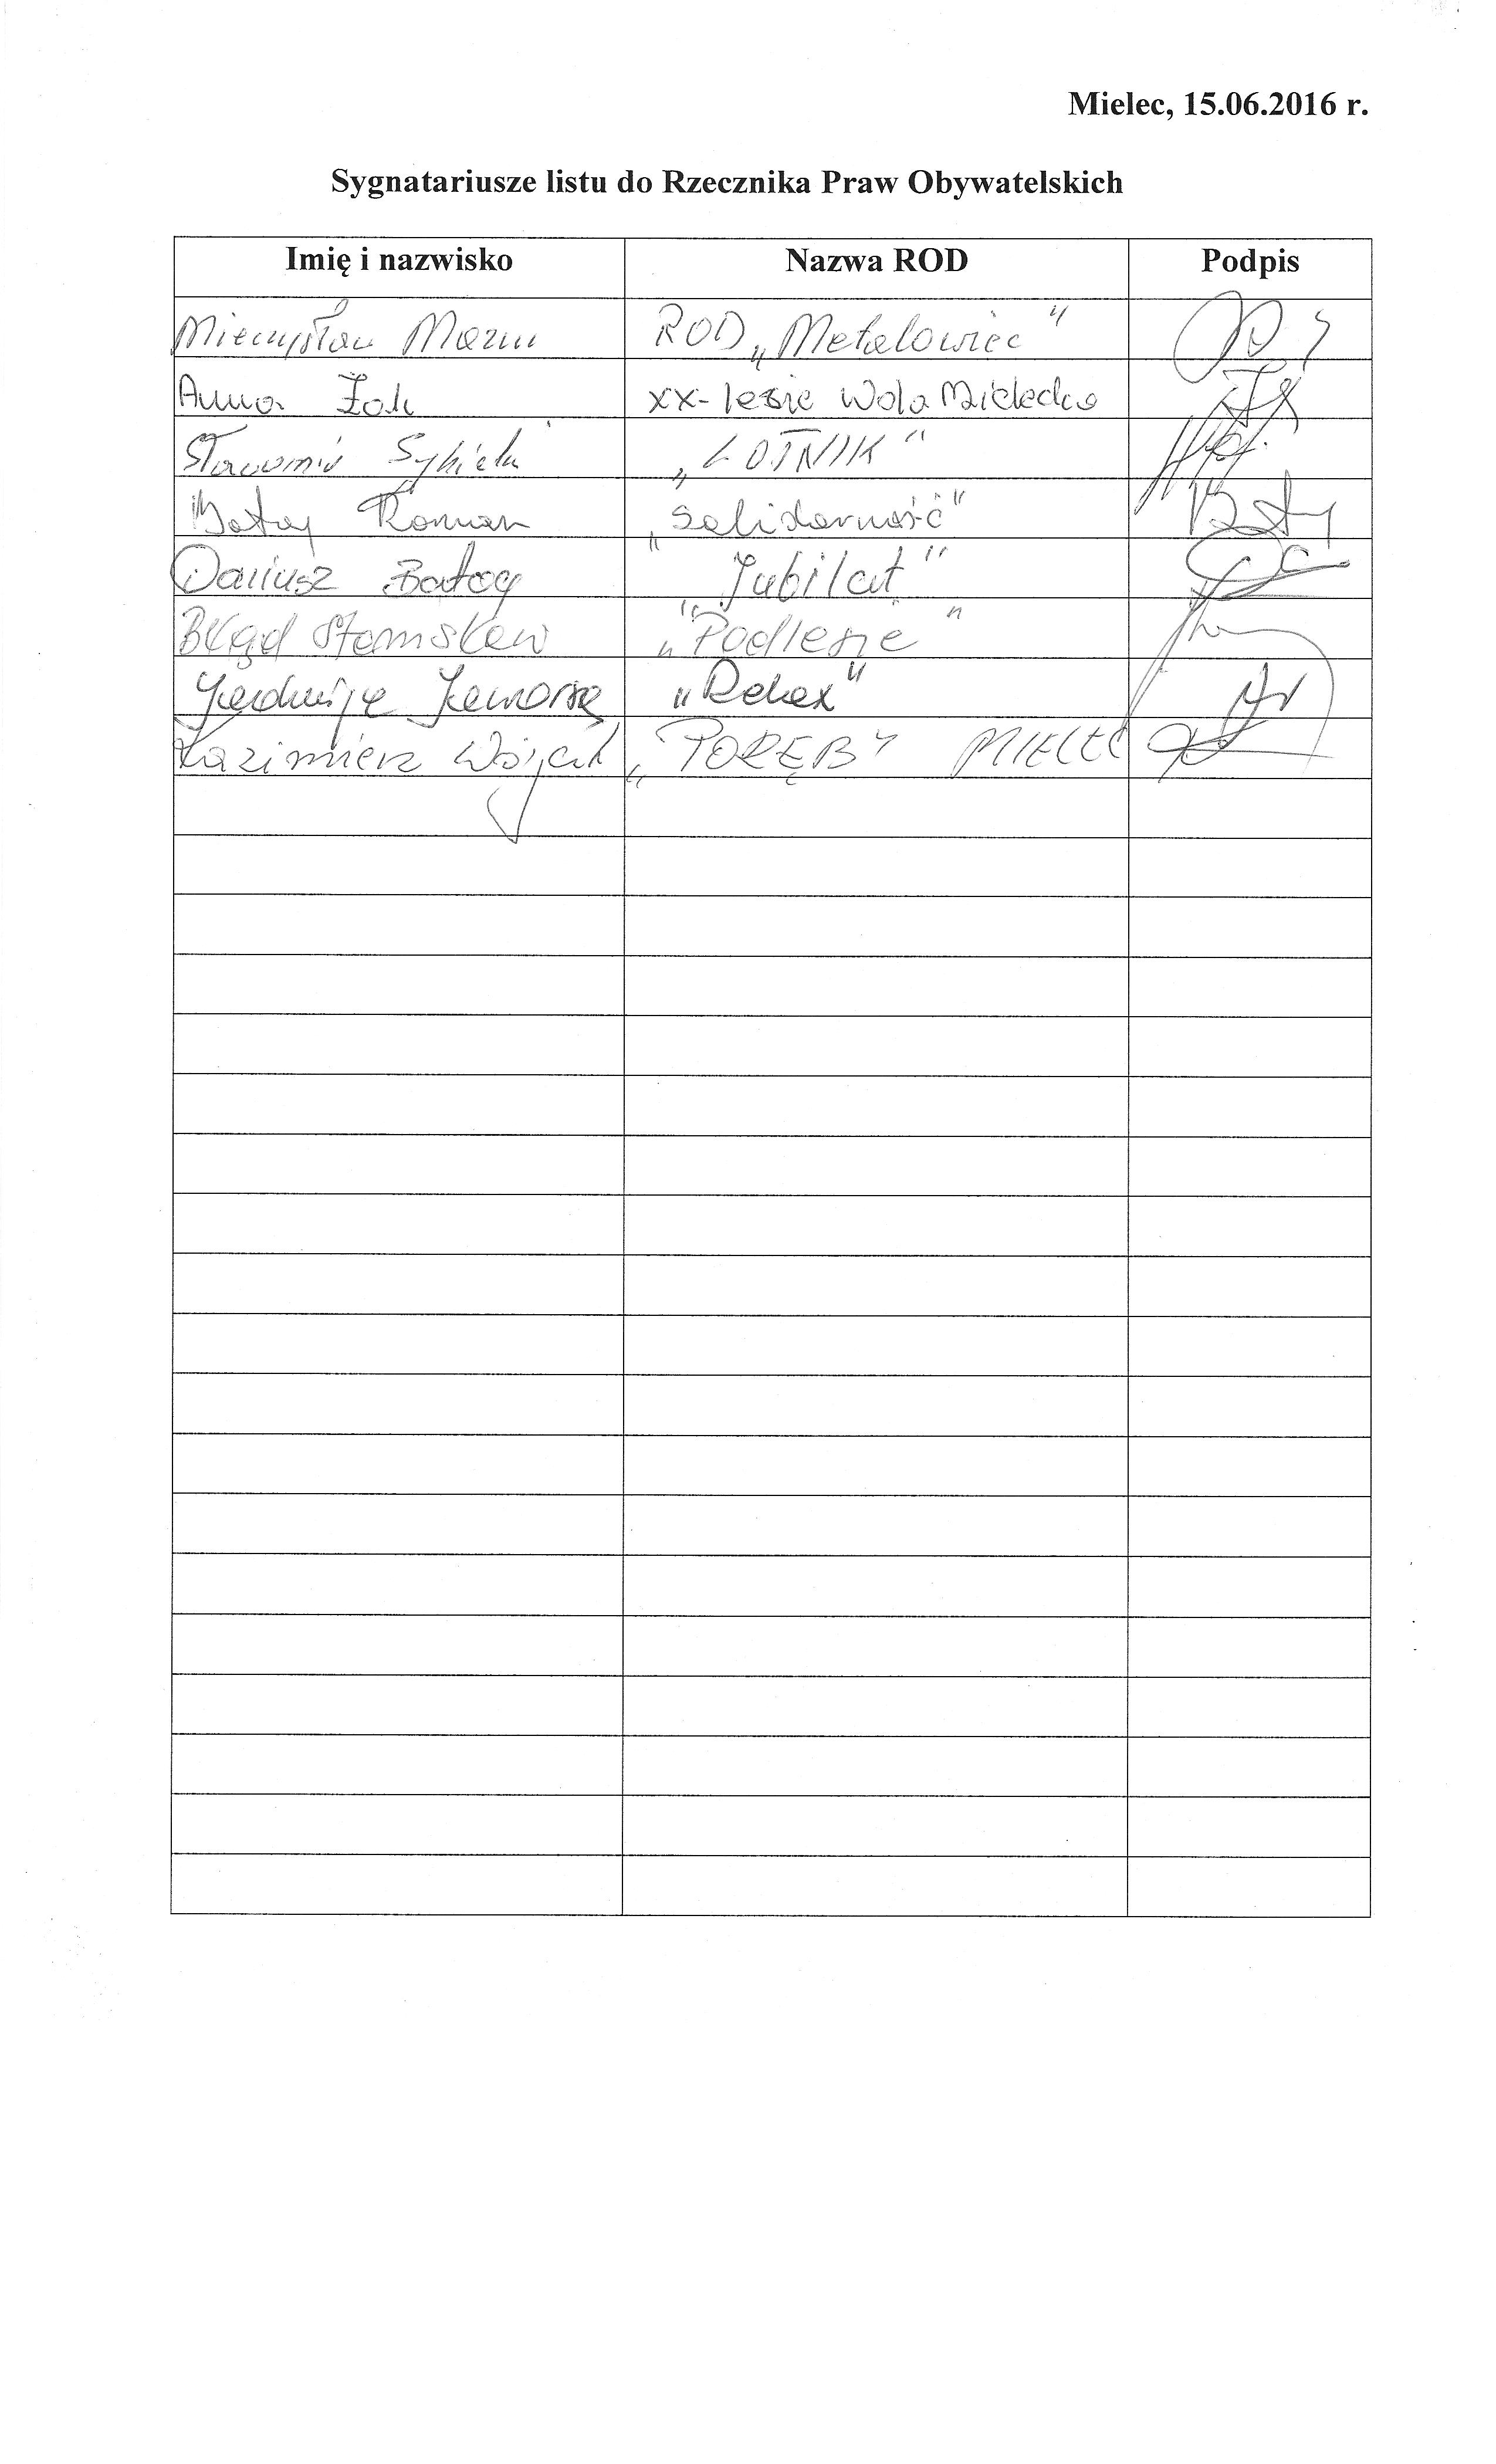 Mielec, 15.06.2016 r.
Sygnatariusze listu do Rzecznika Praw Obywatelskich
Imię i nazwisko Nazwa ROD Podpis
Mieczysław Mazur ROD „Metalowiec"
Anna Żak XX-lecie Wola Mielecka
Sławomir „LOTNIK"
Roman „Solidarność"
Dariusz Batog „Jubilat"
Błąd Stanisław „Podlesie"
„Relax"
Kazimierz Wójcik „PORĘBY MIELEC